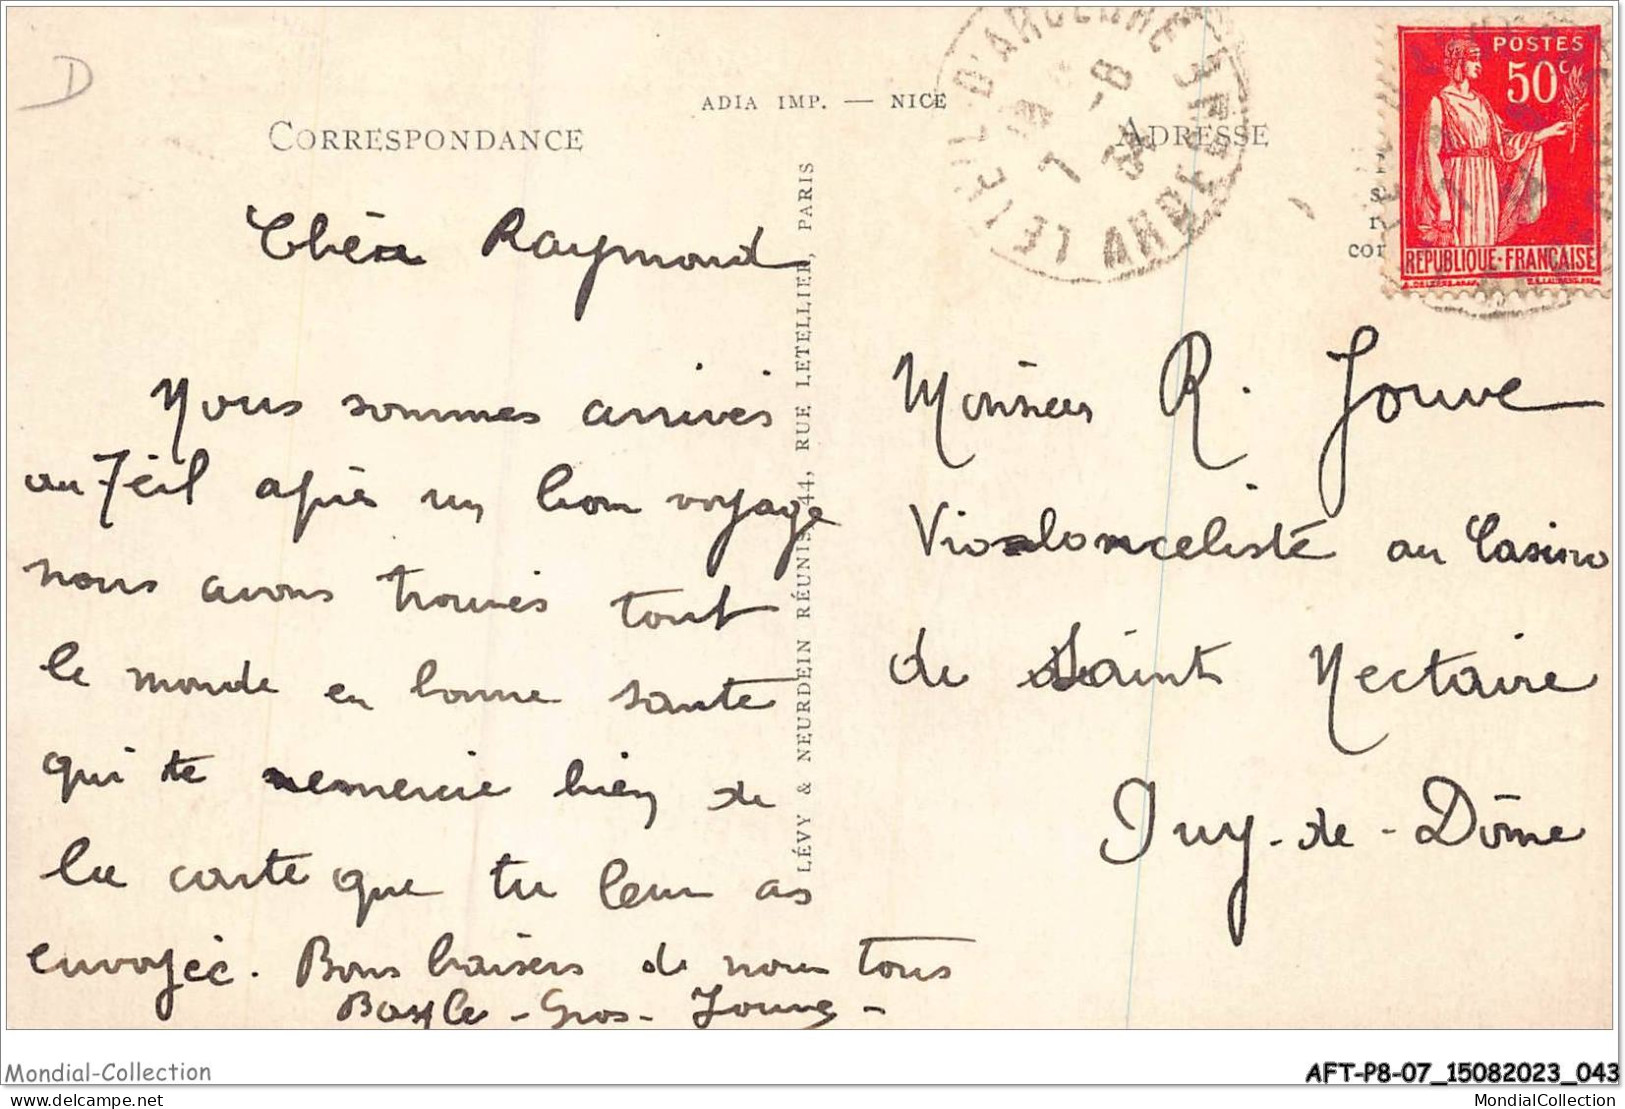 ADIA IMP. — NICE
CORRESPONDANCE
ADRESSE
POSTES
50c
RÉPUBLIQUE-FRANÇAISE
LE TEIL D'ARDÈCHE
7 -8
ARDÈCHE
LÉVY & NEURDEIN RÉUNIS, 44, RUE LETELLIER, PARIS
D
Raymond
Nous sommes arrivés
au Teil après un bon voyage
nous avons trouvés tout
le monde en bonne sante
qui te remercie bien de
la carte que tu leur as
envoyée. Bons baisers de nous tous
Jouve
Monsieur R. Jouve
Violonceliste au Casino
de Saint Nectaire
Puy-de-Dôme
Mondial-Collection
AFT-P8-07_15082023_043
Mondial-Collection.com
MondialCollection